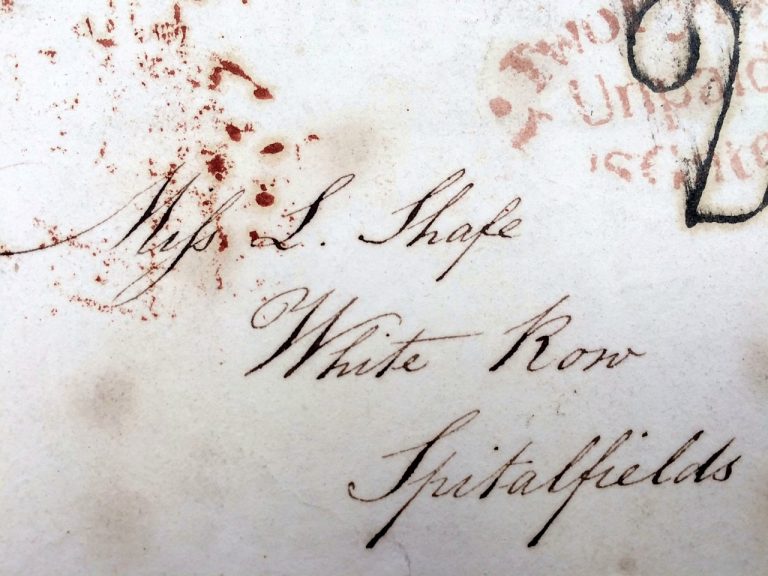 Two
Unpaid
2
Miss L. Shafe
White Row
Spitalfields